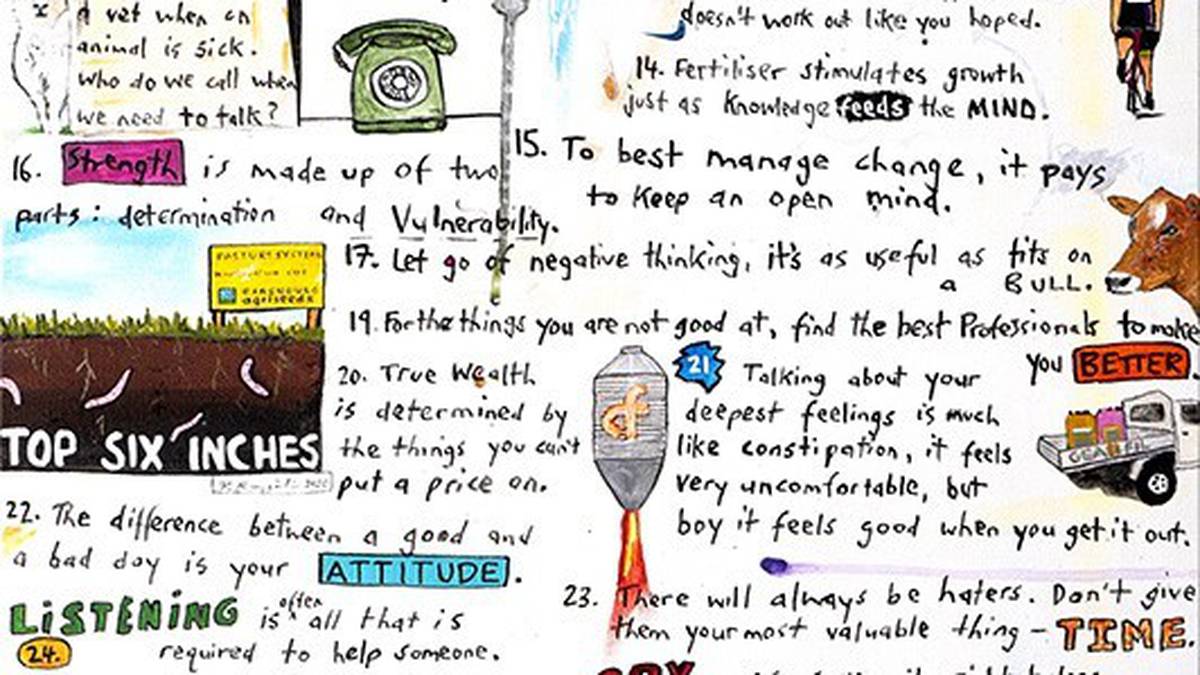 a vet when an
animal is sick.
who do we call when
we need to talk?
doesn't work out like you hoped.
14. Fertiliser stimulates growth
just as knowledge feeds the MIND.
15. To best manage change, it pays
to keep an open mind.
16. Strength is made up of two
parts: determination and Vulnerability.
17. Let go of negative thinking, it's as useful as tits on
a BULL.
agriseeds
TOP SIX INCHES
19. For the things you are not good at, find the best Professionals to make
you BETTER.
20. True Wealth
is determined by
the things you can't
put a price on.
21 Talking about your
deepest feelings is much
like constipation, it feels
very uncomfortable, but
boy it feels good when you get it out.
22. The difference between a good and
a bad day is your ATTITUDE.
23. There will always be haters. Don't give
them your most valuable thing - TIME.
LiSTENiNG is often all that is
24. required to help someone.